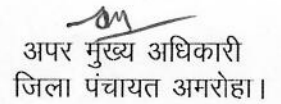 अपर मुख्य अधिकारी
जिला पंचायत अमरोहा।